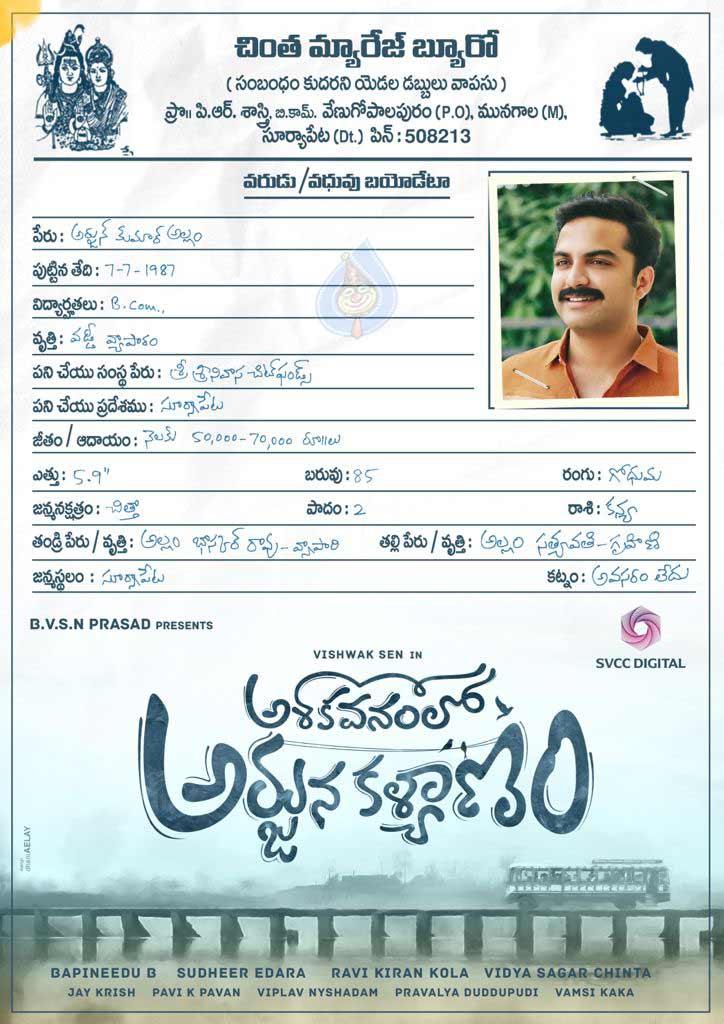 చింత మ్యారేజ్ బ్యూరో
( సంబంధం కుదరని యెడల డబ్బులు వాపసు )
ప్రొ॥ పి.ఆర్. శాస్త్రి, బి.కామ్. వేణుగోపాలపురం (P.O), మునగాల (M),
సూర్యాపేట (Dt.) పిన్ : 508213
వరుడు / వధువు బయోడేటా
పేరు : అర్జున్ కుమార్ అల్లం
పుట్టిన తేది : 7-7-1987
విద్యార్హతలు : B.com.,
వృత్తి : వడ్డీ వ్యాపారం
పని చేయు సంస్థ పేరు : శ్రీ శ్రీనివాస చిట్‌ఫండ్స్
పని చేయు ప్రదేశము : సూర్యాపేట
జీతం / ఆదాయం : నెలకు 50,000-70,000 రూ॥లు
ఎత్తు : 5.9" బరువు : 85 రంగు : గోధుమ
జన్మనక్షత్రం : చిత్తా పాదం : 2 రాశి : కన్య
తండ్రి పేరు / వృత్తి : అల్లం భాస్కర్ రావు - వ్యాపారి తల్లి పేరు / వృత్తి : అల్లం సత్యవతి - గృహిణి
జన్మస్థలం : సూర్యాపేట కట్నం : అవసరం లేదు
B.V.S.N PRASAD PRESENTS
SVCC DIGITAL
VISHWAK SEN IN
అశోకవనంలో
అర్జున కళ్యాణం
BAPINEEDU B SUDHEER EDARA RAVI KIRAN KOLA VIDYA SAGAR CHINTA
JAY KRISH PAVI K PAVAN VIPLAV NYSHADAM PRAVALYA DUDDUPUDI VAMSI KAKA